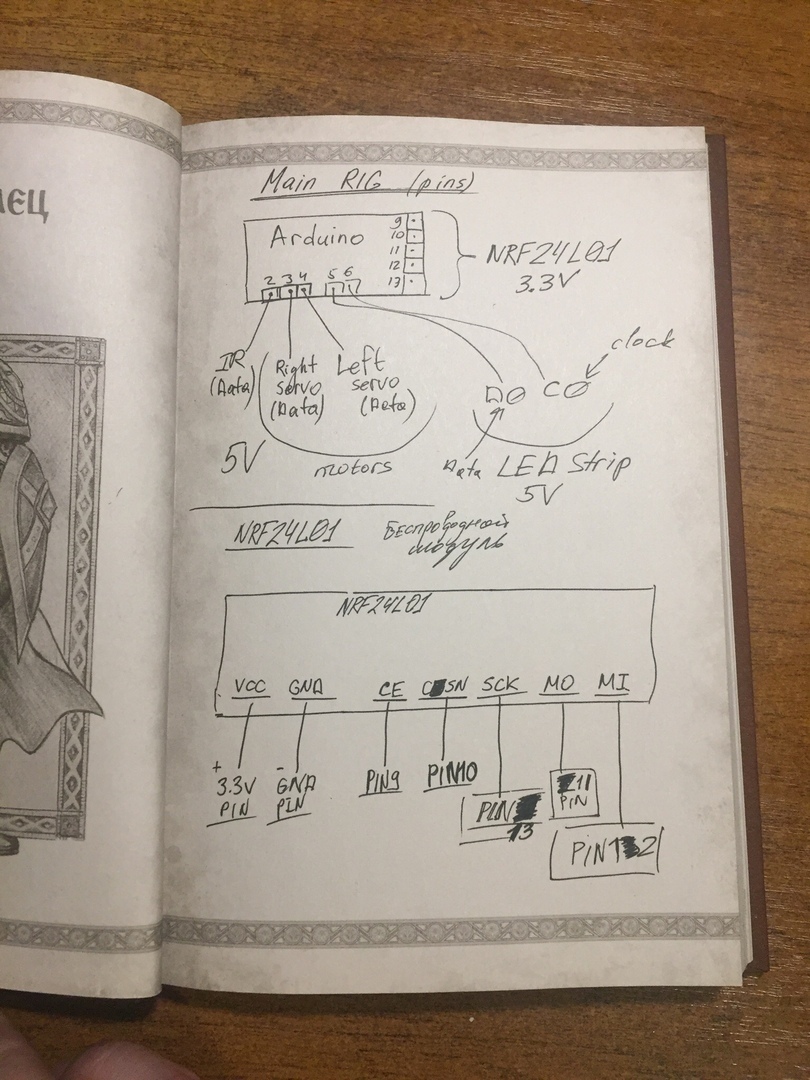 ЛЕЦ
Main RIG (pins)
Arduino
9
10
11
12
13
2 3 4 5 6
NRF24L01
3.3V
clock
IR
(Data)
Right
servo
(Data)
Left
servo
(Data)
DO
CO
5V
motors
Data
LED Strip
5V
NRF24L01
Беспроводной
модуль
NRF24L01
VCC GND CE CSN SCK MO MI
+
3.3V
PIN
-
GND
PIN
PIN9
PIN10
PIN
13
11
PIN
PIN12